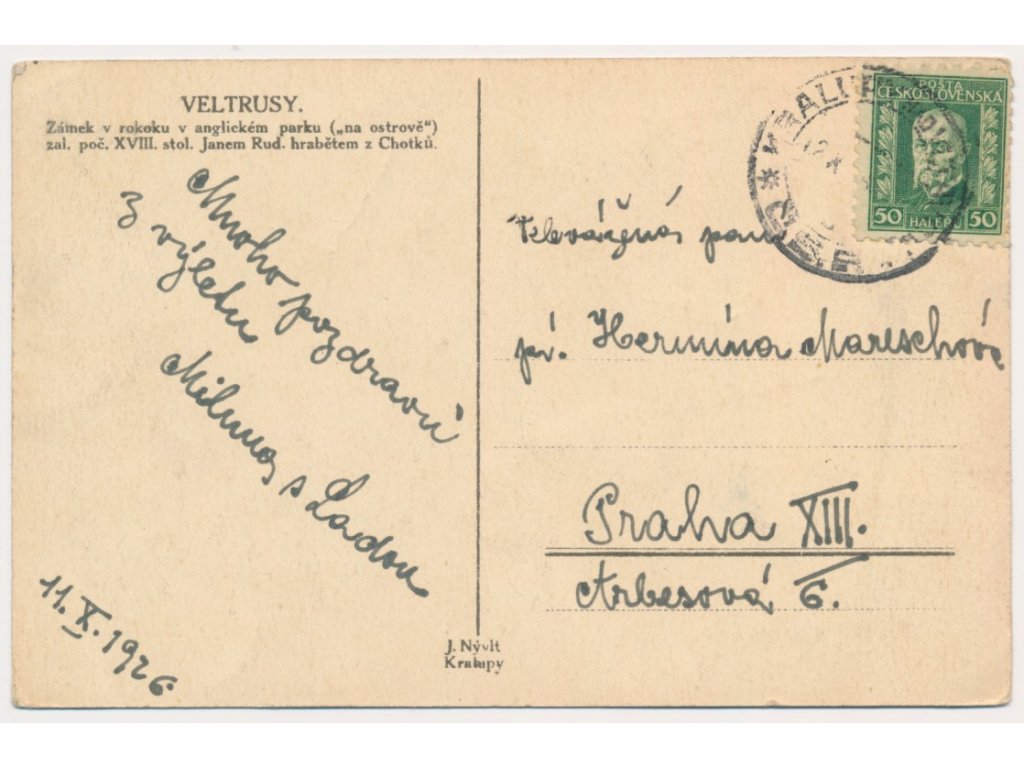 VELTRUSY.
Zámek v rokoku v anglickém parku („na ostrově“)
zal. poč. XVIII. stol. Janem Rud. hrabětem z Chotků.
Mnoho pozdravů
z výletu
Miluna s Ladou
11. X. 1926
J. Nývlt
Kralupy
POSTA
ČESKOSLOVENSKA
50 HALÉŘŮ 50
KRALUPY
pí. Hermína Mareschová
Praha XIII.
Arbesová 6.